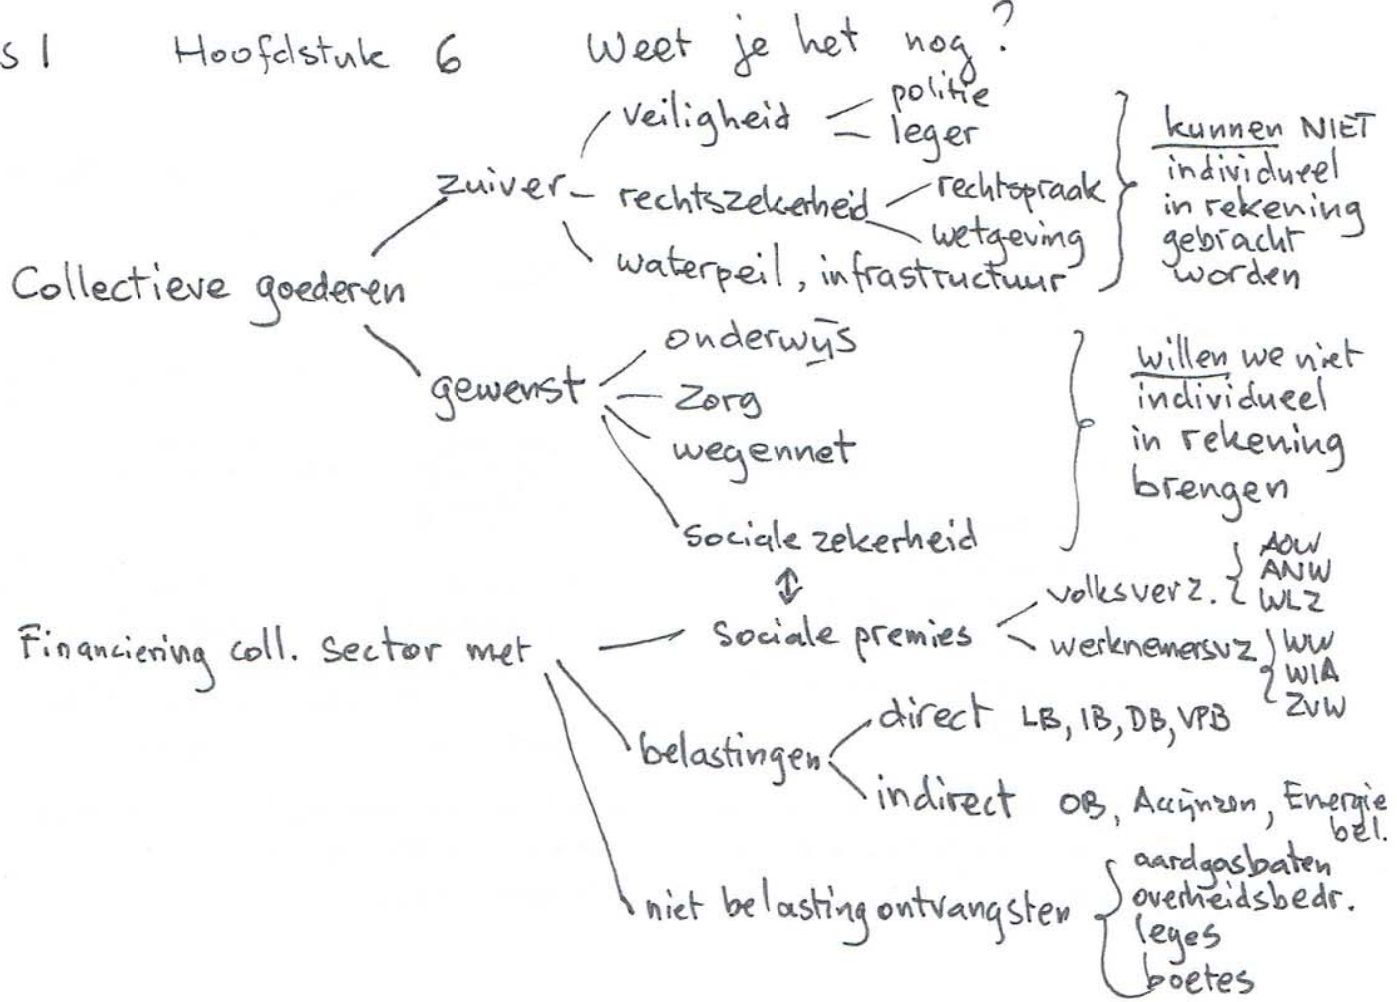 s 1 Hoofdstuk 6 Weet je het nog?
veiligheid politie
leger
kunnen NIET
individueel
in rekening
gebracht
worden
zuiver rechtszekerheid rechtspraak
wetgeving
waterpeil, infrastructuur
Collectieve goederen
gewenst onderwijs
zorg
wegennet
sociale zekerheid
willen we niet
individueel
in rekening
brengen
Financiering coll. sector met sociale premies
volksverz. AOW
ANW
WLZ
werknemersvz WW
WIA
ZVW
belastingen direct LB, IB, DB, VPB
indirect OB, Accijnzen, Energie
bel.
niet belasting ontvangsten aardgasbaten
overheidsbedr.
leges
boetes